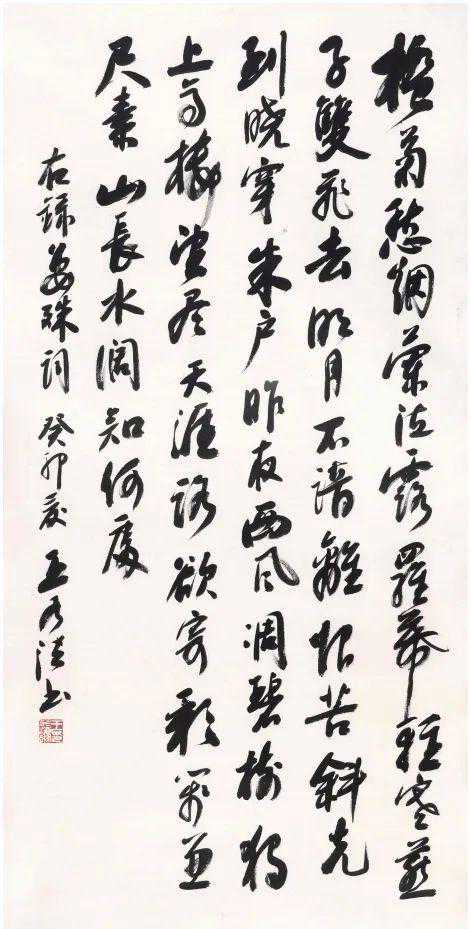 檻菊愁煙蘭泣露羅幕輕寒燕
子雙飛去明月不諳離恨苦斜光
到曉穿朱户昨夜西風凋碧樹獨
上高樓望尽天涯路欲寄彩箋兼
尺素山長水闊知何處
右錄晏殊詞 癸卯 王 书